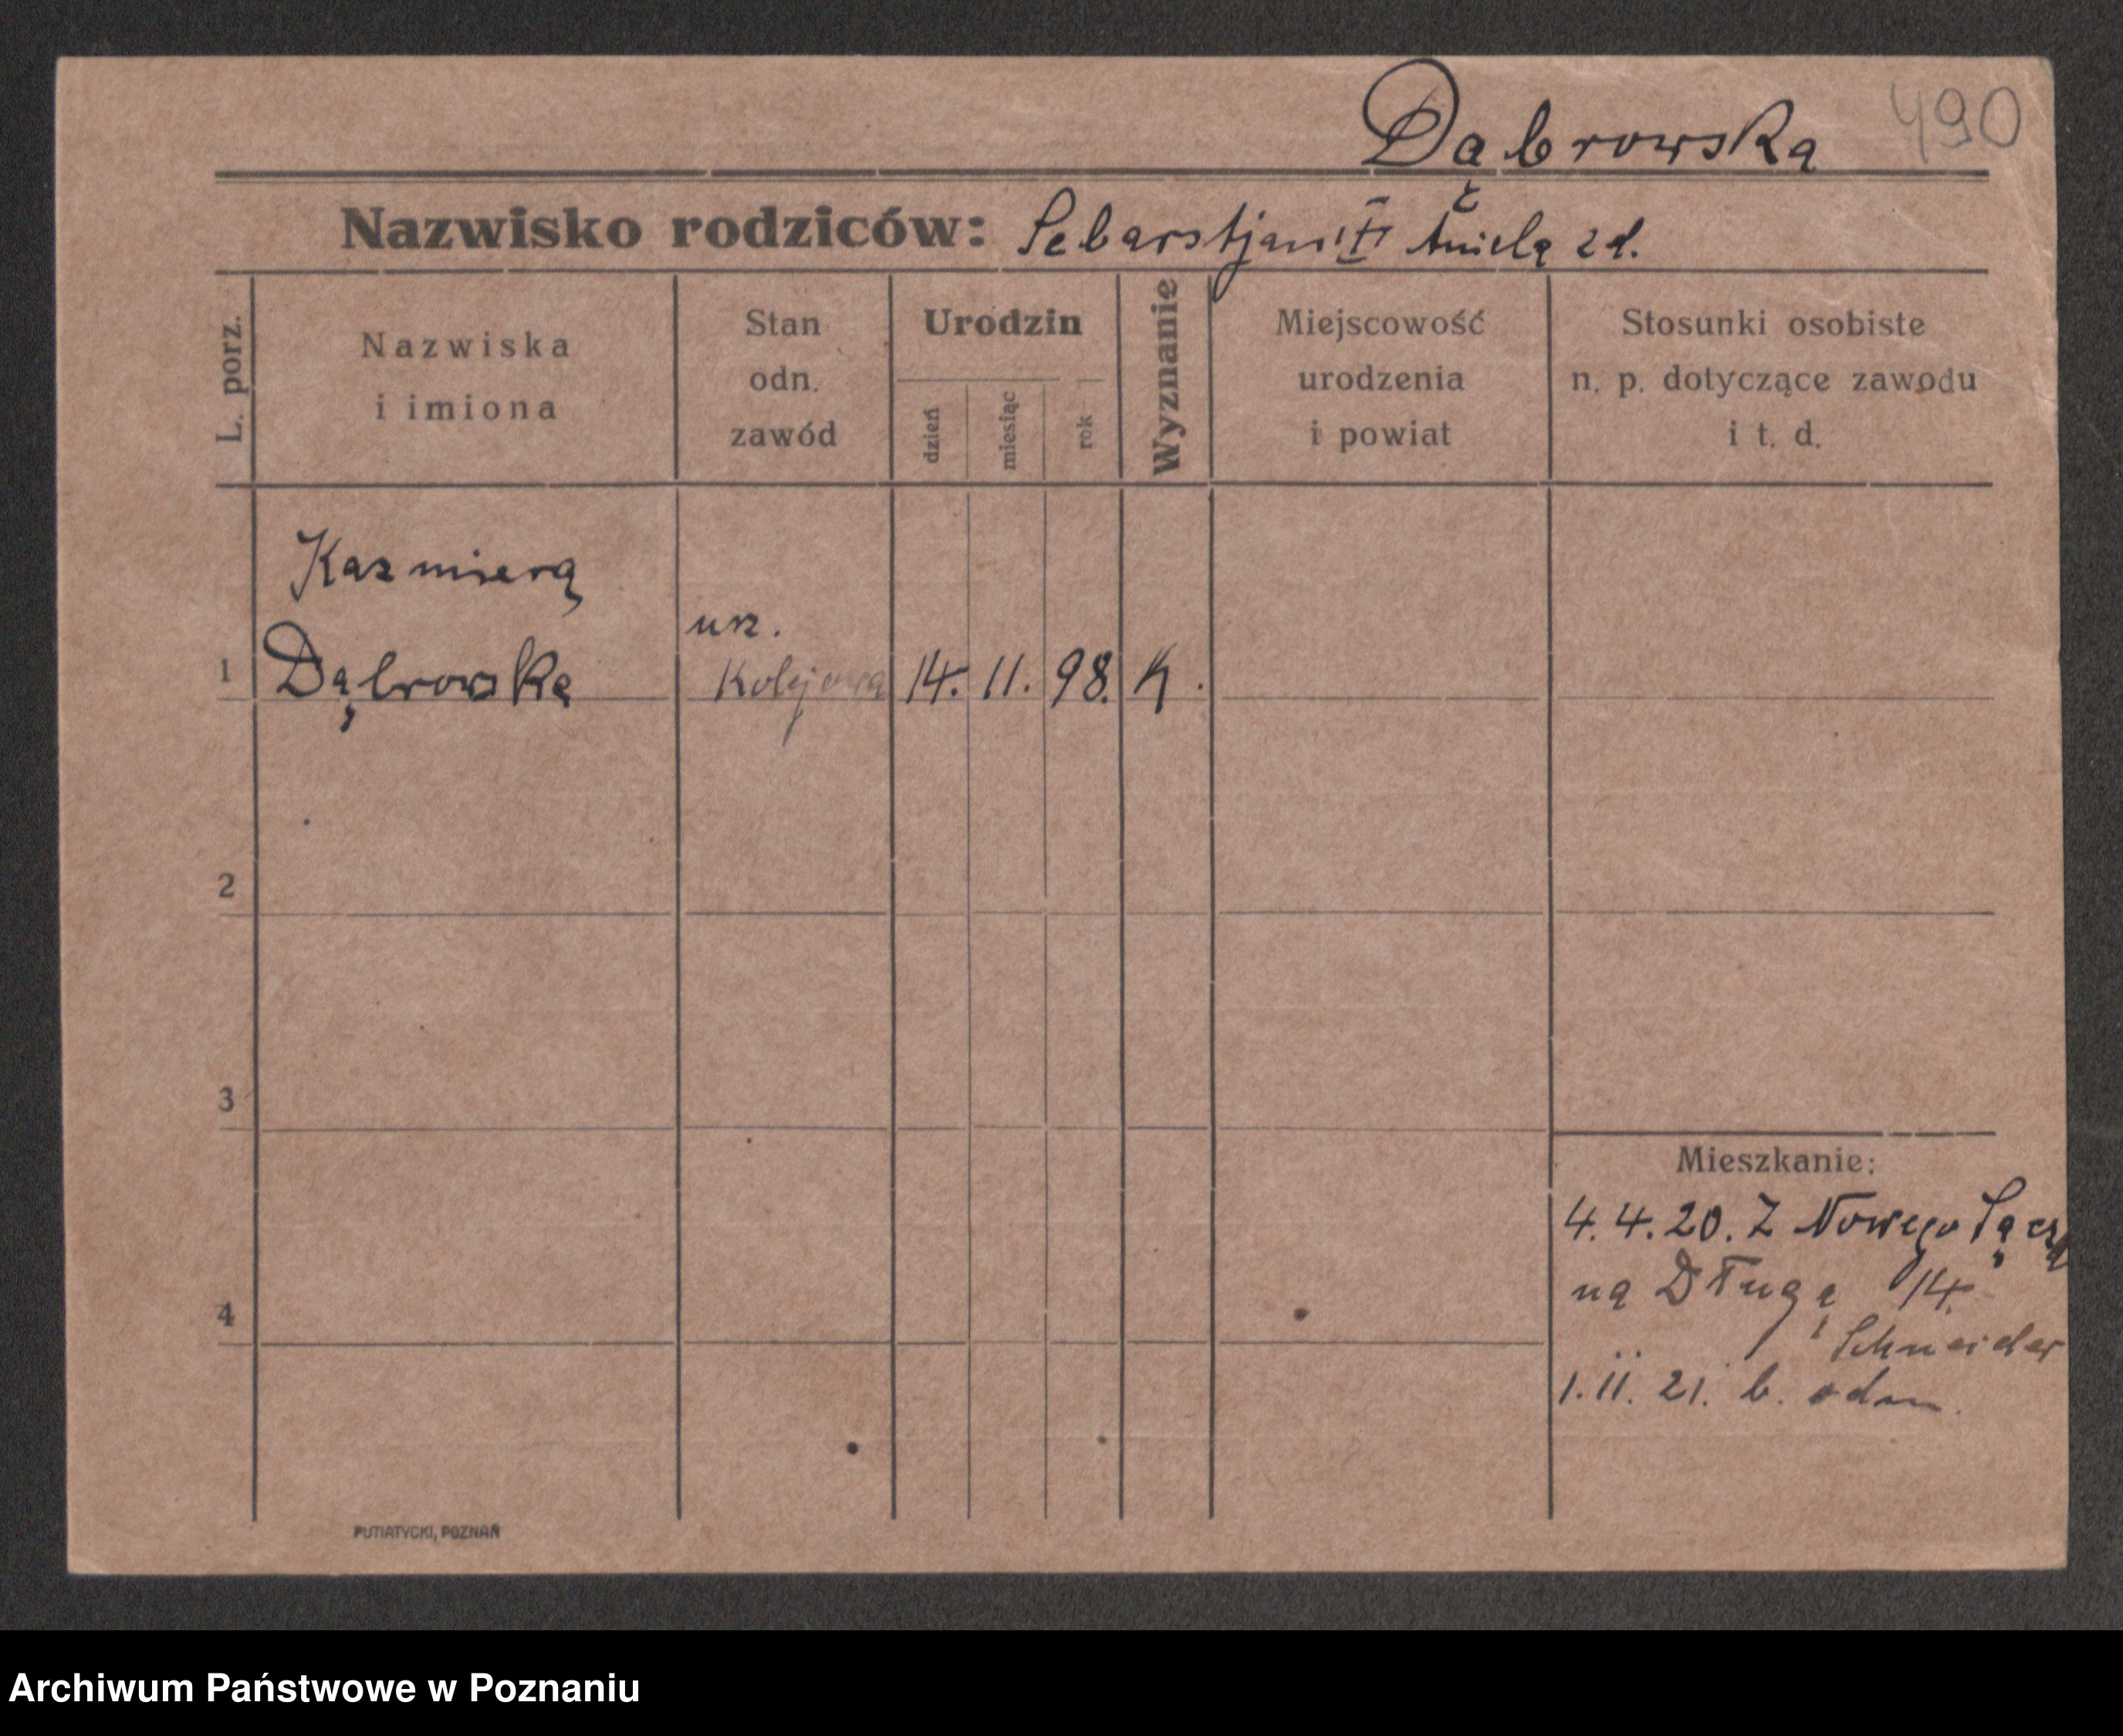 Dąbrowska 490
Nazwisko rodziców: Sebarstjan Aniela z d.
L. porz.
Nazwiska
i imiona
Stan
odn.
zawód
Urodzin
dzień
miesiąc
rok
Wyznanie
Miejscowość
urodzenia
i powiat
Stosunki osobiste
n. p. dotyczące zawodu
i t. d.
Kazmiera
urz.
1 Dąbrowska Kolejowa 14. 11. 98. K.
2
3
Mieszkanie:
4. 4. 20. Z Nowego Sącza
na Długą 14.
4
Schneider
1. II. 21. b. odm.
PUTIATYCKI, POZNAŃ
Archiwum Państwowe w Poznaniu